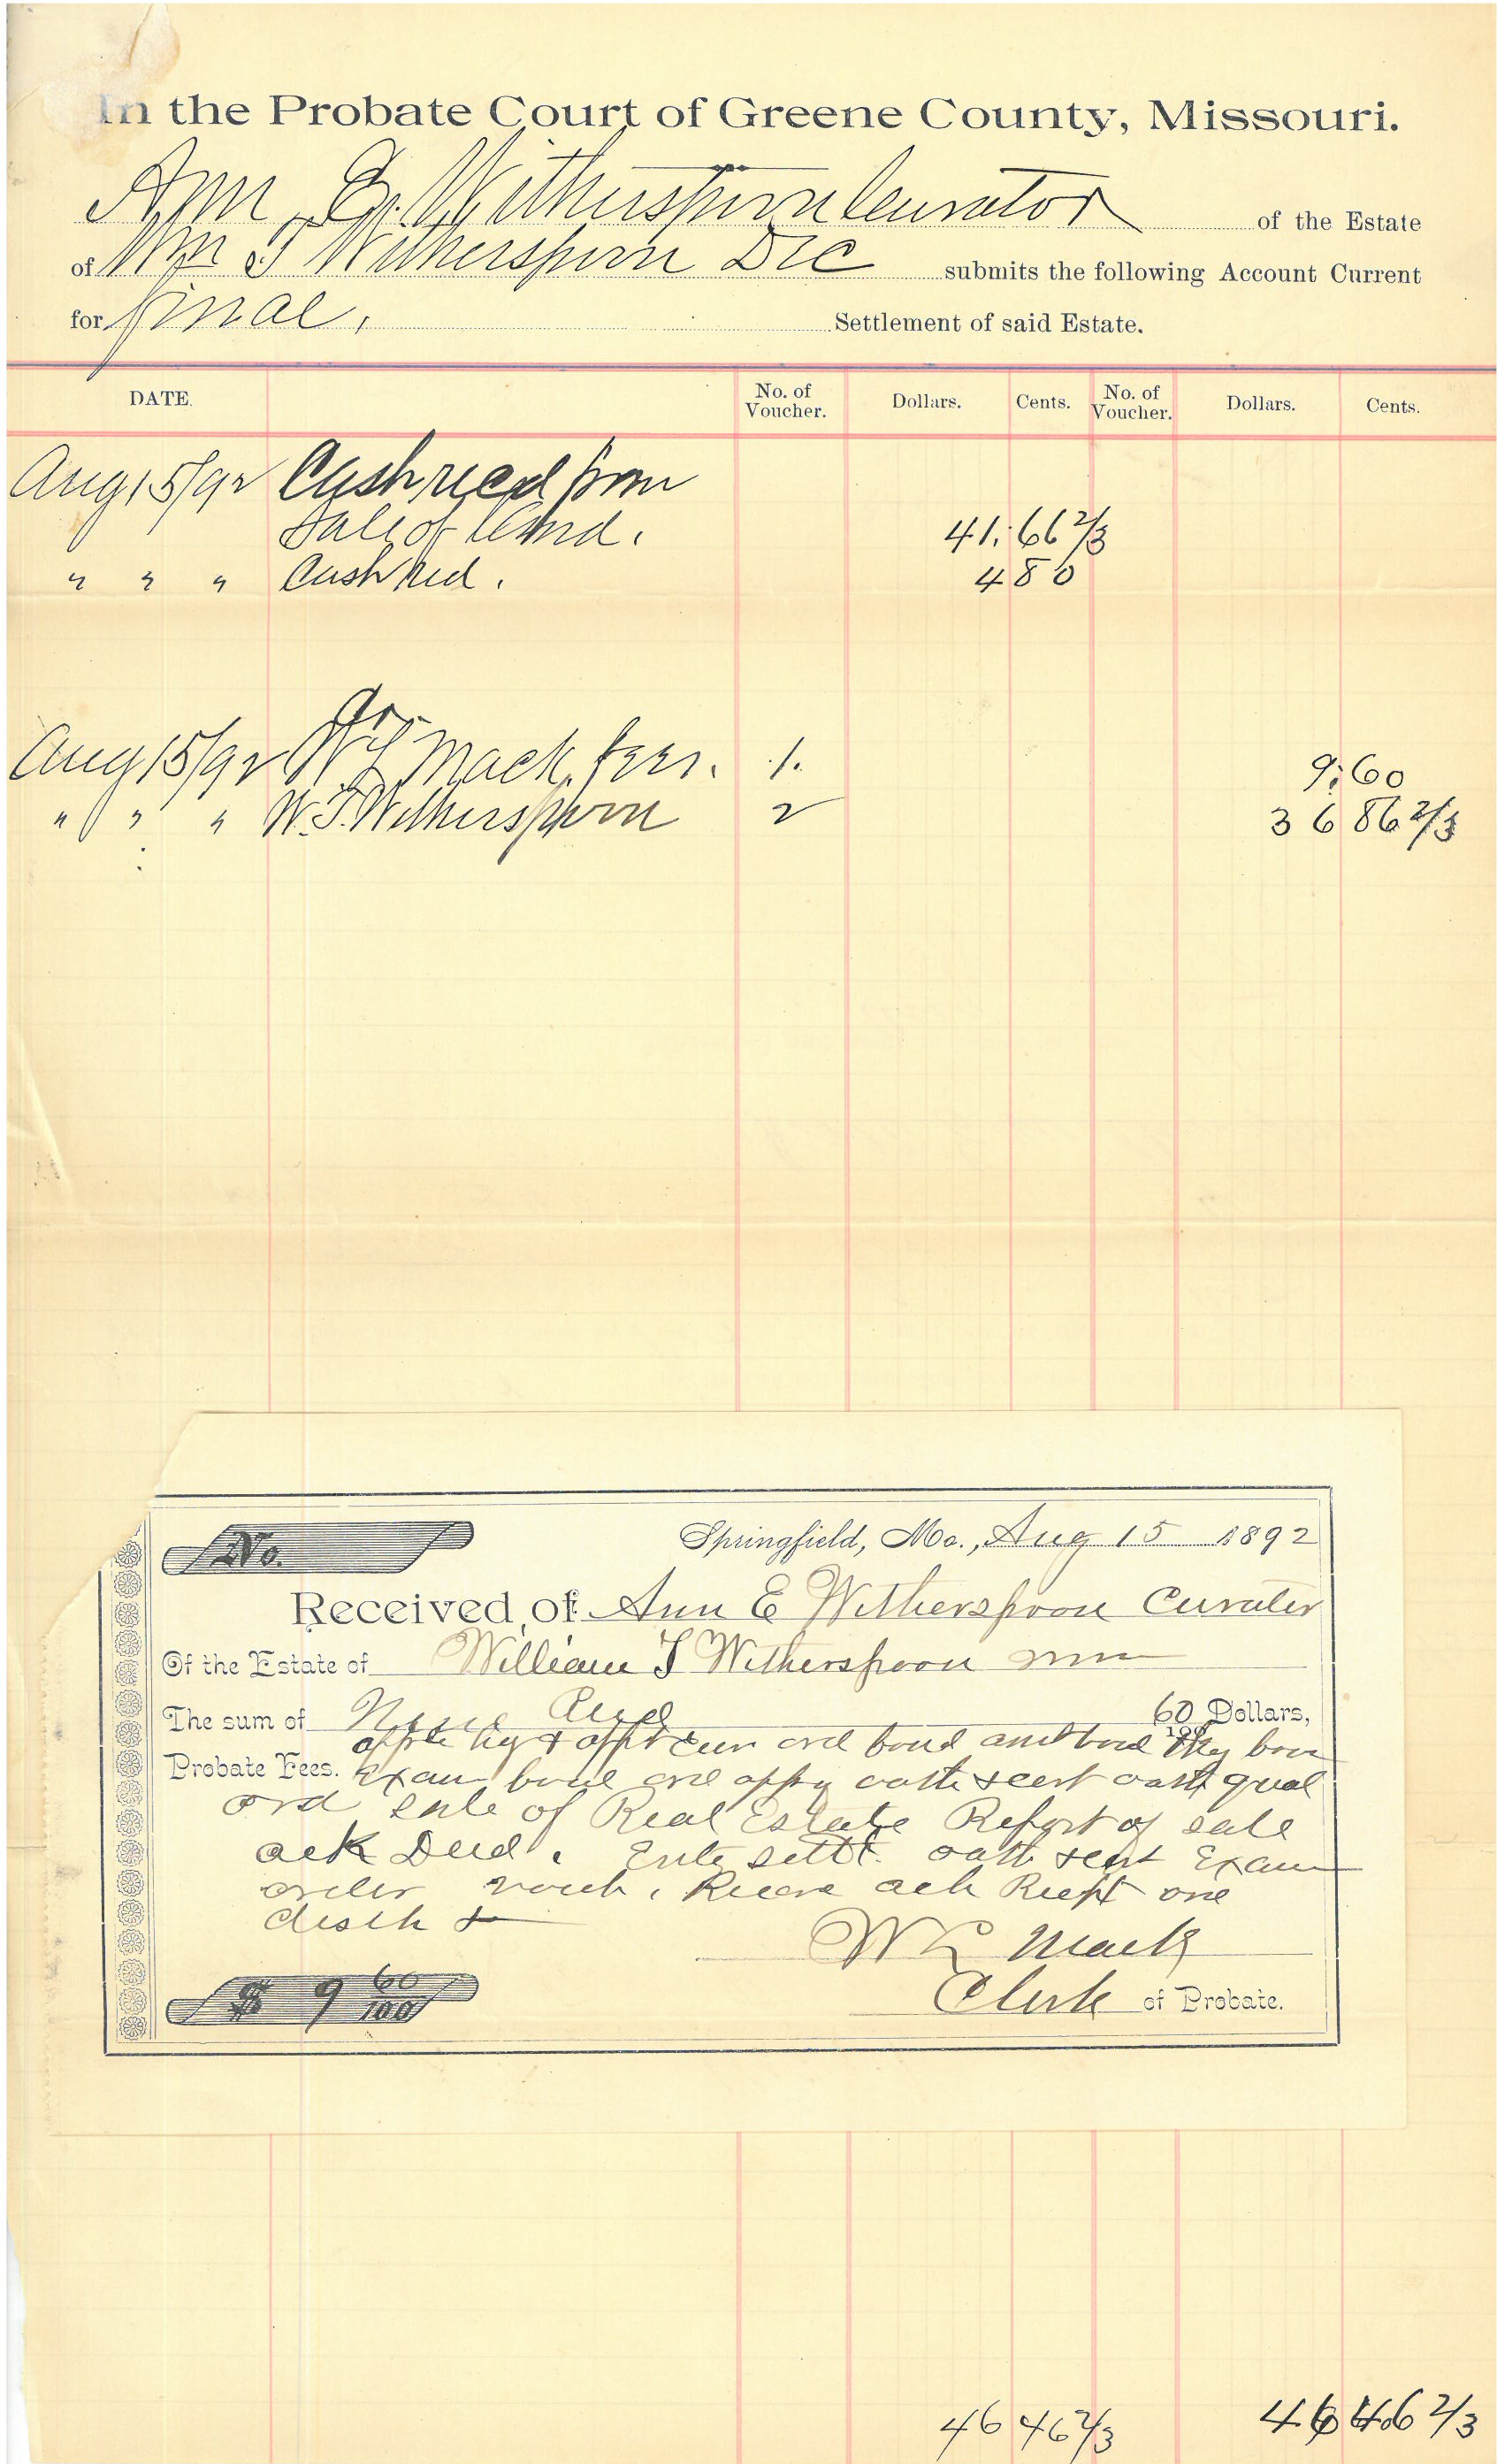 In the Probate Court of Greene County, Missouri.
Ann E. Witherspoon Curator of the Estate
of Wm T Witherspoon Dec submits the following Account Current
for final, Settlement of said Estate.
DATE. No. of Voucher. Dollars. Cents. No. of Voucher. Dollars. Cents.
Aug 15/92 Cash recd from
Sale of Land. 41.66 2/3
" " " Cash recd. 4 80
Cr.
Aug 15/92 W L Mack, fees. 1. 9.60
" " " W. T. Witherspoon 2 36 86 2/3
No.
Springfield, Mo., Aug 15 1892
Received of Ann E Witherspoon Curator
Of the Estate of William T Witherspoon
The sum of Nine and 60/100 Dollars,
Probate Fees.
Exam bond
ord sale of Real Estate Report of sale
ack Deed. oath Exam
order one
W L Mack
$ 9 60/100
Clerk of Probate.
46 46 2/3 46 46 2/3